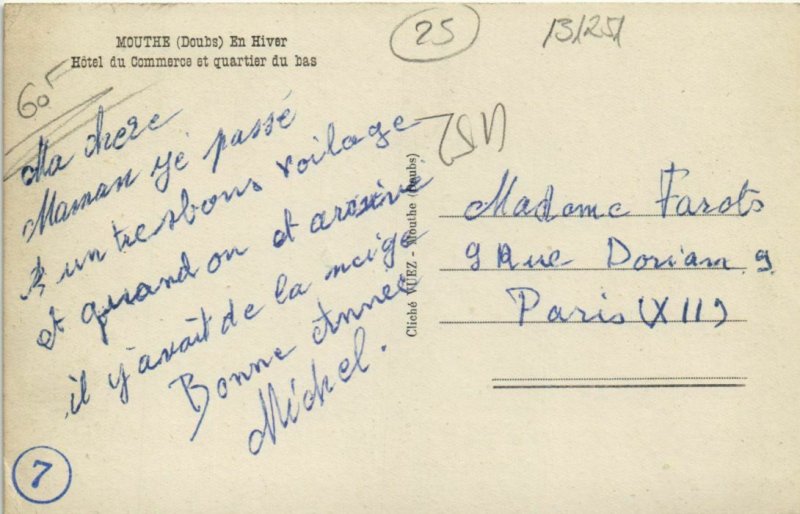 MOUTHE (Doubs) En Hiver
Hôtel du Commerce et quartier du bas
25
13/251
60F
Ma chere
Maman yé passé
un tres bons voilage
et quand on et arrivé
il y avait de la neige
Bonne Année
Michel.
7
Cliché VUEZ - Mouthe (Doubs)
Madame Farots
9 Rue Dorian 9
Paris (XII)